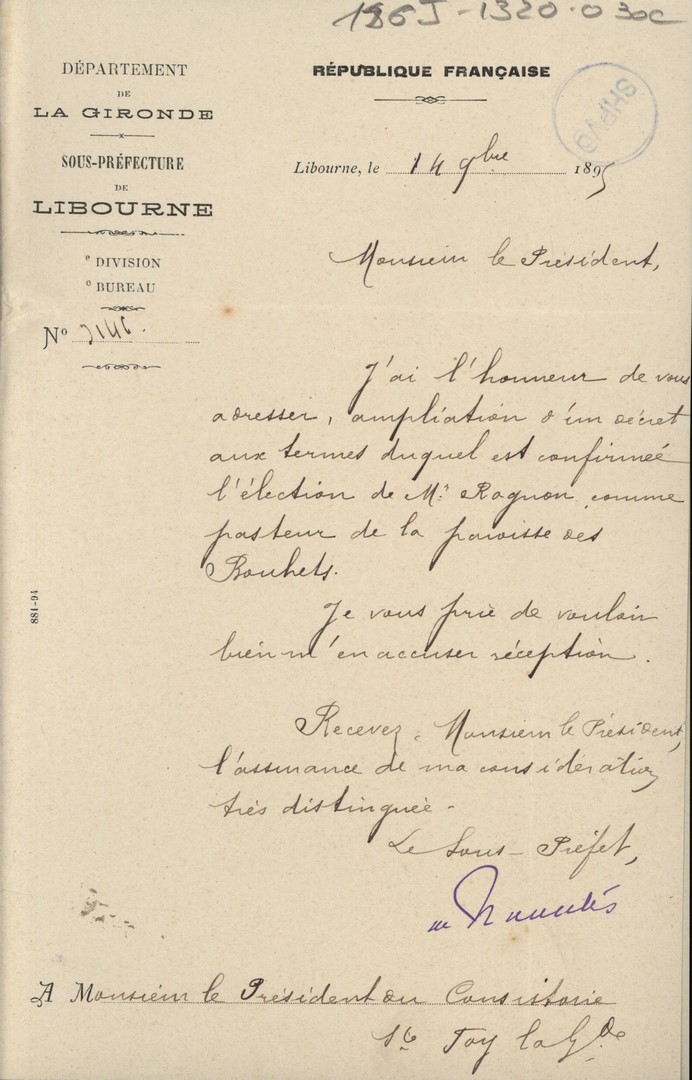 186J-1320.030c
DÉPARTEMENT
DE
LA GIRONDE
SOUS-PRÉFECTURE
DE
LIBOURNE
e DIVISION
e BUREAU
No
RÉPUBLIQUE FRANÇAISE
SHPVD
Libourne, le 14 9bre 1895
Monsieur le Président,
J'ai l'honneur de vous
adresser, ampliation d'un décret
aux termes duquel est confirmée
l'élection de Mr. Rognon, comme
pasteur de la paroisse des
Bouhets.
Je vous prie de vouloir
bien m'en accuser réception.
881-94
Recevez, Monsieur le Président,
l'assurance de ma considération
très distinguée.
Le Sous-Préfet,
A Monsieur le Président du Consistoire
Ste Foy la Gde